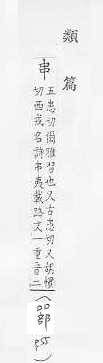 類篇
串
五患切爾雅習也又古患切又慣
切西戎名詩串夷載路文一重音二
部